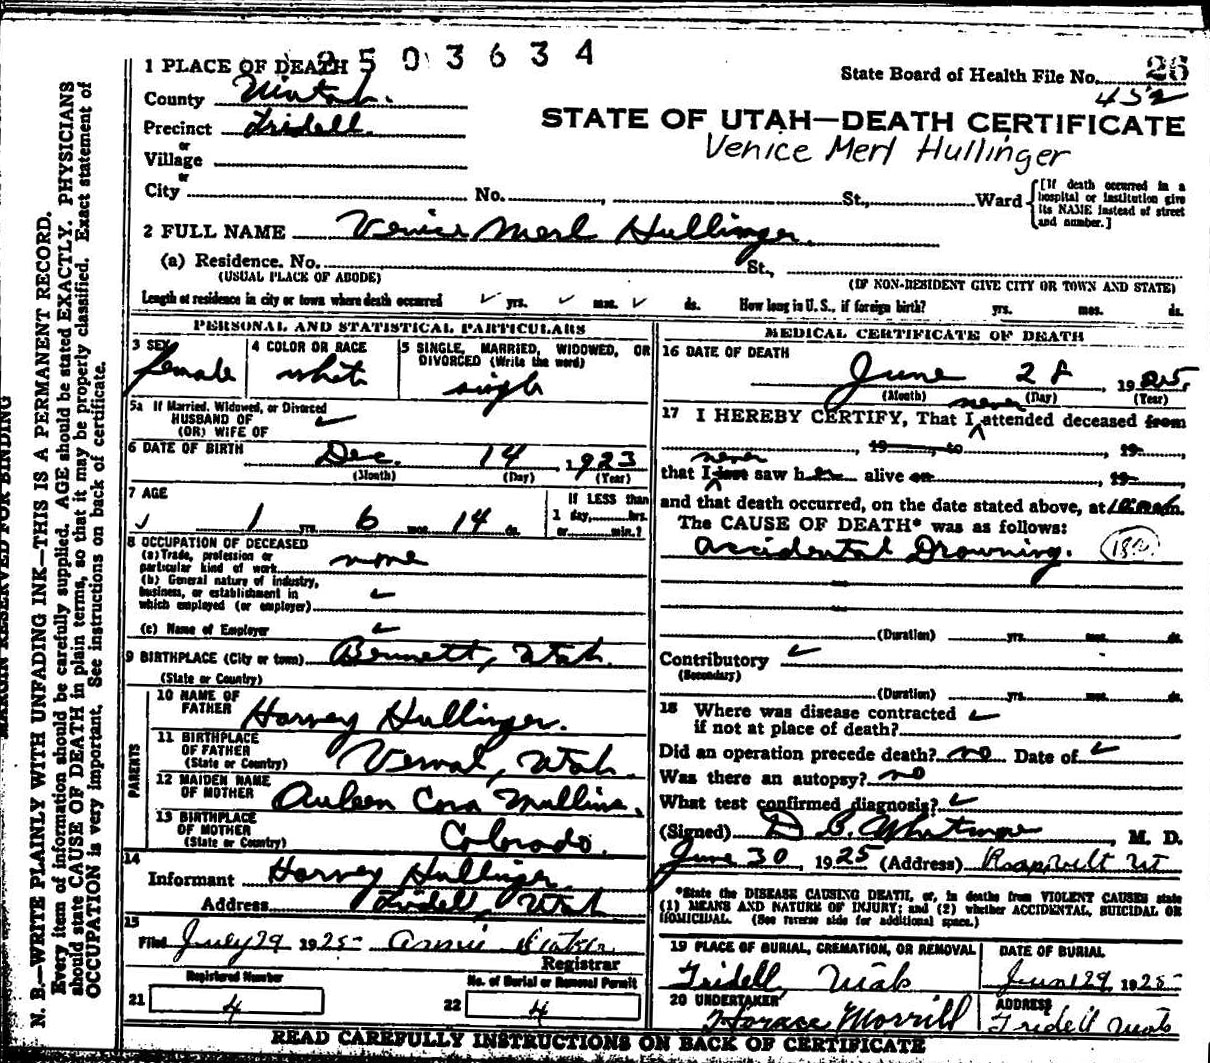 2503634
1 PLACE OF DEATH
State Board of Health File No. 28
452
County Uintah.
Precinct Tridell.
or
Village
or
City No. St., Ward
[If death occurred in a hospital or institution give its NAME instead of street and number.]
STATE OF UTAH—DEATH CERTIFICATE
Venice Merl Hullinger
2 FULL NAME Venice Merl Hullinger.
(a) Residence. No. St.,
(USUAL PLACE OF ABODE) (IF NON-RESIDENT GIVE CITY OR TOWN AND STATE)
Length of residence in city or town where death occurred ✓ yrs. ✓ mos. ✓ ds. How long in U. S., if foreign birth? yrs. mos. ds.
PERSONAL AND STATISTICAL PARTICULARS
3 SEX female
4 COLOR OR RACE white
5 SINGLE, MARRIED, WIDOWED, OR DIVORCED (Write the word) single
5a If Married, Widowed, or Divorced
HUSBAND OF
(OR) WIFE OF ✓
6 DATE OF BIRTH Dec. 14, 1923
(Month) (Day) (Year)
7 AGE
1 yrs. 6 mos. 14 ds.
If LESS than
1 day, hrs.
or min.?
8 OCCUPATION OF DECEASED
(a) Trade, profession or
particular kind of work none
(b) General nature of industry,
business, or establishment in
which employed (or employer) ✓
(c) Name of Employer ✓
9 BIRTHPLACE (City or town) Bennett, Utah.
(State or Country)
PARENTS
10 NAME OF
FATHER Harvey Hullinger.
11 BIRTHPLACE
OF FATHER
(State or Country) Vernal, Utah
12 MAIDEN NAME
OF MOTHER Auleen Cora Mullins.
13 BIRTHPLACE
OF MOTHER
(State or Country) Colorado.
14
Informant Harvey Hullinger.
Address Tridell, Utah
15
Filed July 29 1925 Annie
Registrar
Registered Number No. of Burial or Removal Permit
21 4 22 4
MEDICAL CERTIFICATE OF DEATH
16 DATE OF DEATH
June 28, 1925.
(Month) (Day) (Year)
never
17 I HEREBY CERTIFY, That I attended deceased from
, 19 , to , 19
never
that I last saw h er alive on , 19
and that death occurred, on the date stated above, at m.
The CAUSE OF DEATH* was as follows:
Accidental Drowning.
(Duration) yrs. mos. ds.
Contributory ✓
(Secondary)
(Duration) yrs. mos. ds.
18 Where was disease contracted ✓
if not at place of death?
Did an operation precede death? no Date of ✓
Was there an autopsy? no
What test confirmed diagnosis? ✓
(Signed) D. B. Whitmore, M. D.
June 30, 1925 (Address) Roosevelt Ut
*State the DISEASE CAUSING DEATH, or, in deaths from VIOLENT CAUSES state
(1) MEANS AND NATURE OF INJURY; and (2) whether ACCIDENTAL, SUICIDAL OR
HOMICIDAL. (See reverse side for additional space.)
19 PLACE OF BURIAL, CREMATION, OR REMOVAL
Tridell, Utah
DATE OF BURIAL
June 29, 1925
20 UNDERTAKER
Horace Morrill
ADDRESS
Tridell Utah
READ CAREFULLY INSTRUCTIONS ON BACK OF CERTIFICATE
MARGIN RESERVED FOR BINDING
N. B.—WRITE PLAINLY WITH UNFADING INK—THIS IS A PERMANENT RECORD.
Every item of information should be carefully supplied. AGE should be stated EXACTLY. PHYSICIANS
should state CAUSE OF DEATH in plain terms, so that it may be properly classified. Exact statement of
OCCUPATION is very important. See instructions on back of certificate.